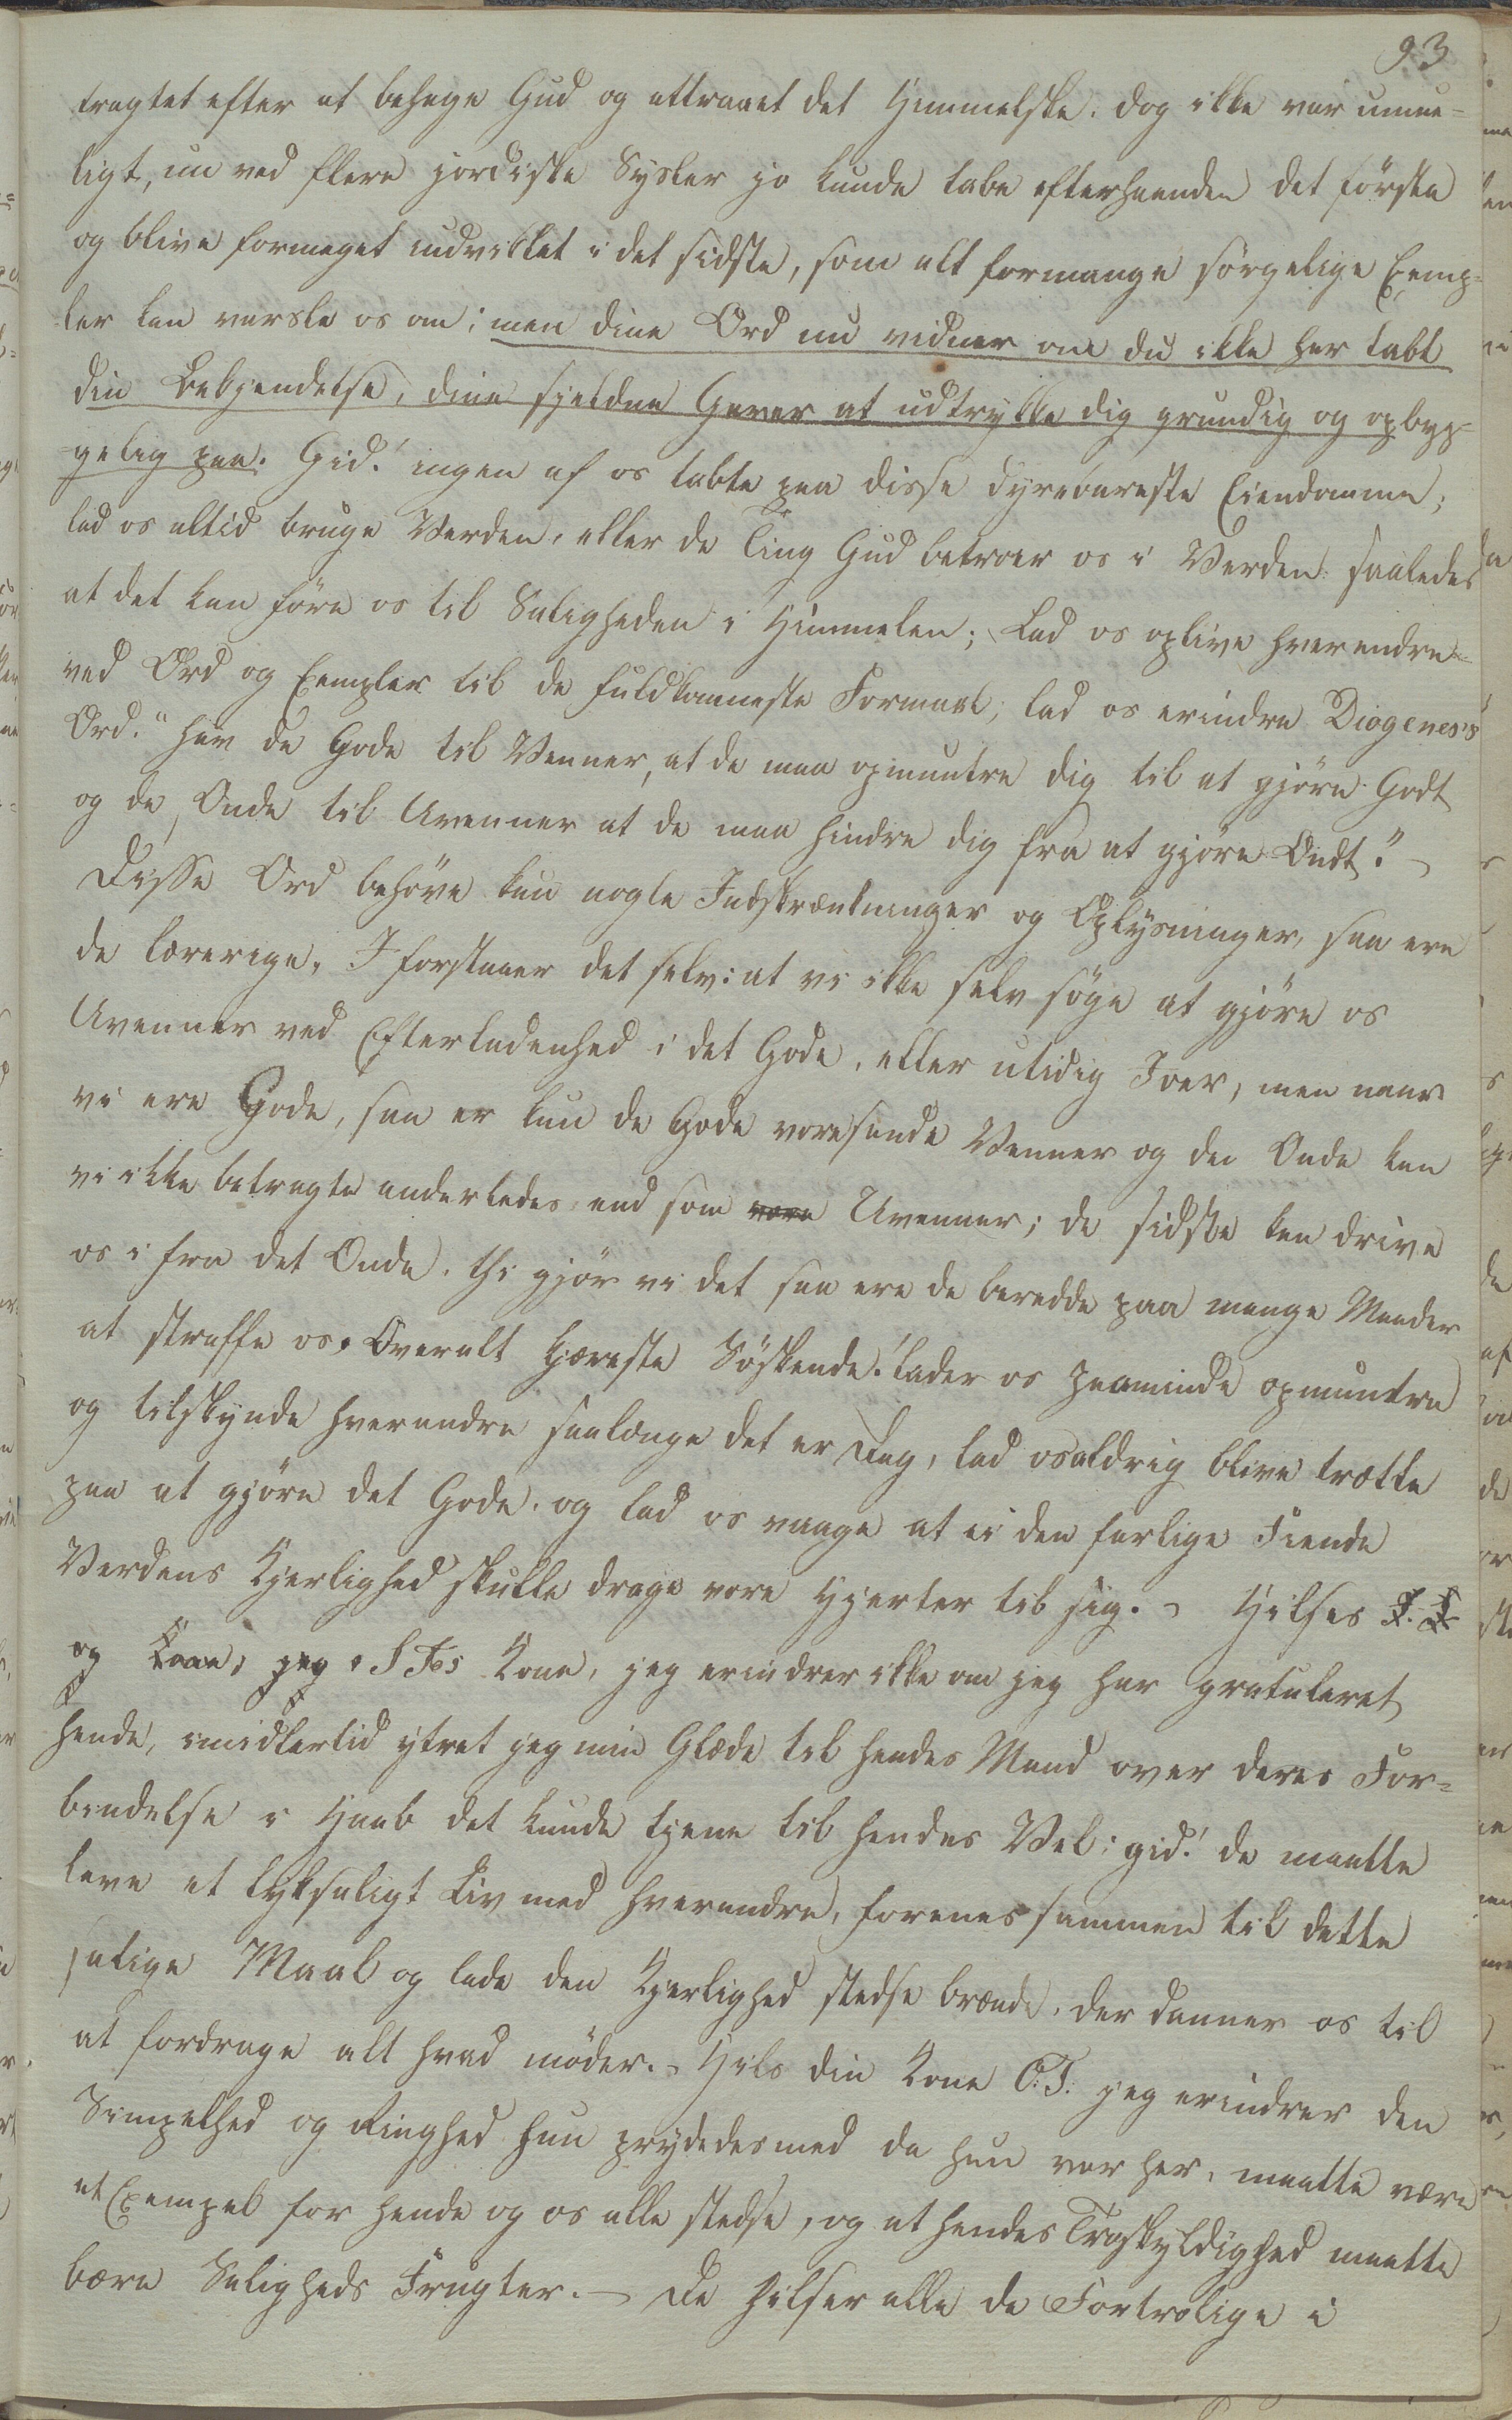 93
tragtet efter at behage Gud og attraaet det Himmelske. dog ikke var umue-
ligt, nu ved flere jordiske Sysler jo kunde tabe efterhaanden det første
og blive formeget indviklet i det sidste, som alt formange sørgelige Exemp-
ler kan varsle os om; men dine Ord nu vidner om du ikke har tabt
din Bekjendelse, dine sjeldne Gaver at udtrykke dig grundig og opbyg-
gelig paa. Gid! ingen af os tabte paa disse dyrebareste Eiendomme;
lad os altid bruge Verden, eller de Ting Gud betroer os i Verden saaledes
at det kan føre os til Saligheden i Himmelen; Lad os oplive hverandre
ved Ord og Exempler til de fuldkomneste Formaal; lad os erindre Diogenes's
Ord. "hav de Gode til Venner, at de maa opmuntre dig til at gjøre Godt
og de Onde til Uvenner at de maa hindre dig fra at gjøre Ondt." -
Disse Ord behøve kun nogle Indskrænkninger og Oplysninger, saa ere
de lærerige. I forstaaer det selv: at vi ikke selv søge at gjøre os
Uvenner ved Efterladenhed i det Gode, eller utidig Iver, men naar
vi ere Gode, saa er kun de Gode vore sande Venner og de Onde kan
vi ikke betragte anderledes end som vore Uvenner; de sidste kan drive
os i fra det Onde. thi gjør vi det saa ere de beredde paa mange Maader
at straffe os. Overalt kjæreste Søskende! lader os paaminde opmuntre
og tilskynde hverandre saalænge det er Dag, lad os aldrig blive trætte
paa at gjøre det Gode. og lad os vaage at ei den farlige Fiende
Verdens Kjerlighed skulle drage vore Hjerter til sig. - Hilses
og Kone, jeg . S Fes Kone, jeg erindrer ikke om jeg har gratuleret
hende, imidlertid ytret jeg min Glæde til hendes Mand over deres For-
bindelse i Haab det kunde tjene til hendes Vel; gid! de maatte
leve et lyksaligt Liv med hverandre, forenes sammen til dette
salige Maal og lade den Kjerlighed stedse brænde, der danner os til
at fordrage alt hvad møder. - Hils din Kone O. T. jeg erindrer den
Simpelhed og Ringhed hun prydedes med da hun var her, maatte være
et Exempel for hende og os alle stedse, og at hendes Troskyldighed maatte
bære Saligheds Frugter. - De hilser alle de Fortrolige i